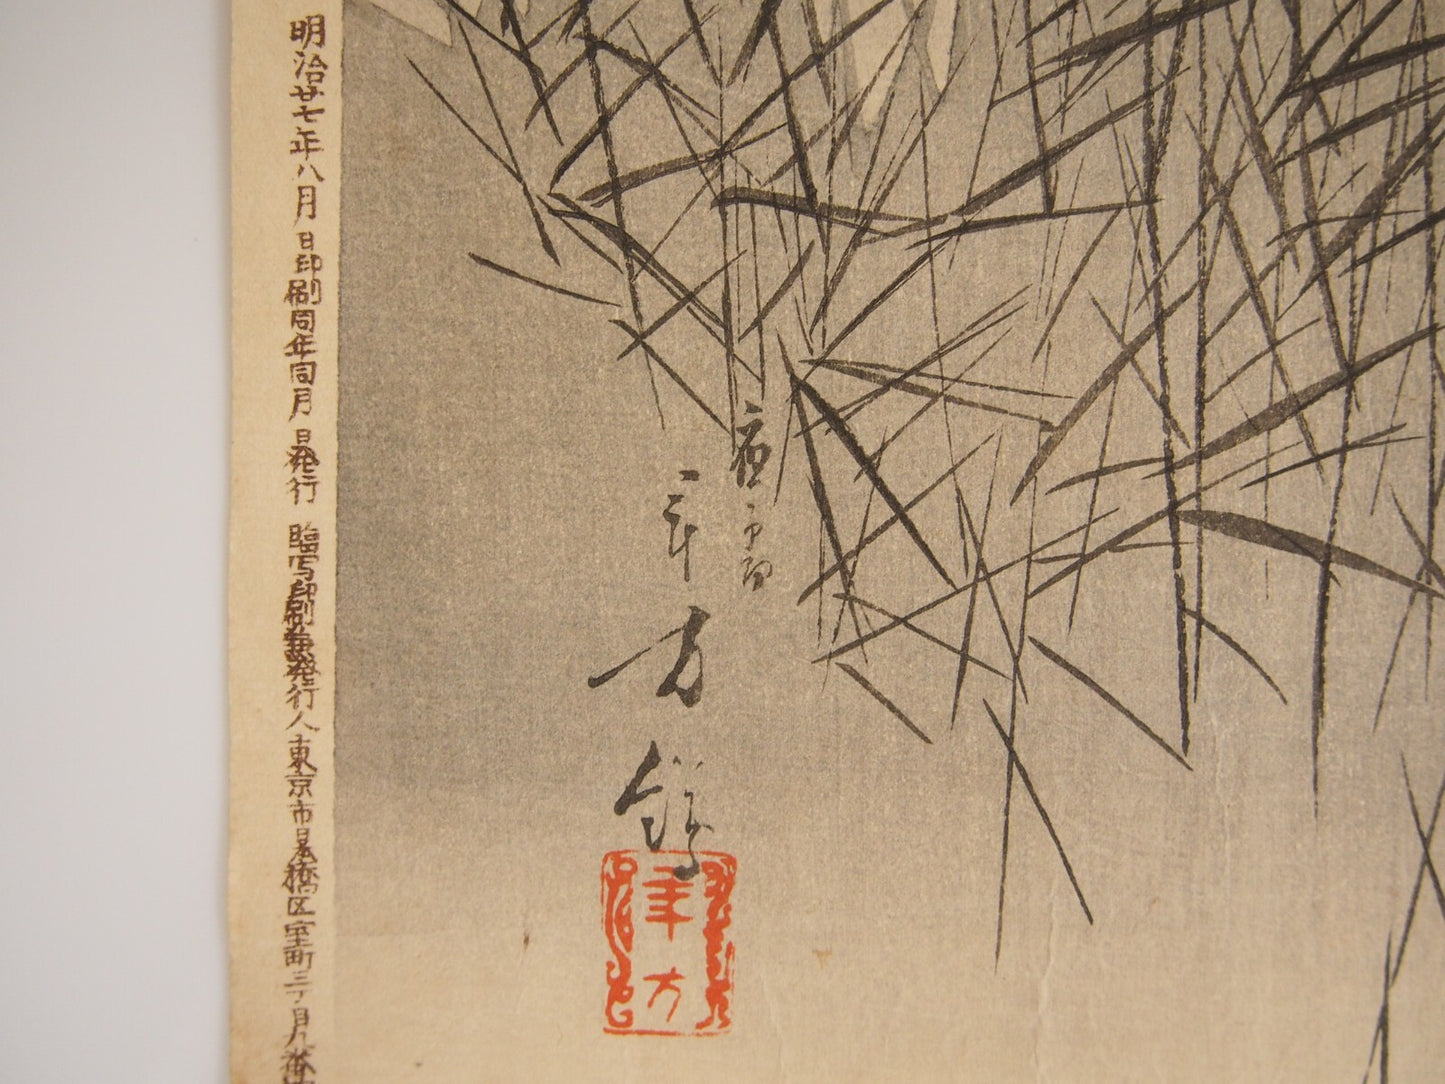 明治廿七年八月 日印刷同年同月 日発行 臨写印刷兼発行人東京市日本橋区室町三丁目九番
年方
年方